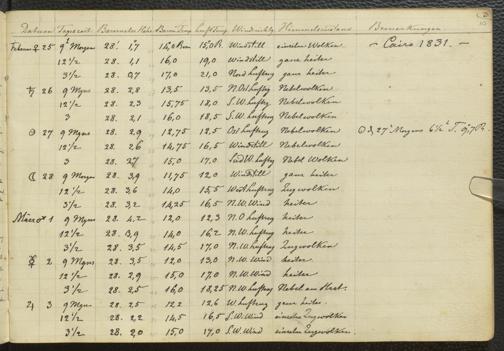 Datum Tageszeit Barometer Höhe Barom Temp Lufttemp Windrichtg Himmelszustand Bemerkungen
Februar ♀ 25 9h Morgen 28. 1,7 14,0 Rm 15,0 R. Windstill einzelne Wolken — Cairo 1831. —
12 1/2 28. 1,1 16,0 19,0 Windstill ganz heiter
3 1/2 28. 0,7 17,0 21,0 Nord luftzg ganz heiter
♄ 26 9 Mgns 28. 2,8 13,5 13,5 N.Ost luftzg Nebelwolken
12 1/2 28. 2,3 15,75 18,0 S.W. luftzg Nebelwolken
3 28. 2,1 16,0 18,5 S.W. luftzg Nebelwolken
☉ 27 9 Mgns 28. 2,9 12,75 12,5 Ost luftzg Nebelwolken ☉ d. 27t Morgens 6 1/2 h T. 9,7 R.
12 1/2 28. 2,6 14,75 16,5 Windstill Nebelwolken
3 28. 2,7 15,0 17,0 Süd W. luftzg Nebel Wolken
☾ 28 9 Morgen 28. 3,9 11,75 12,0 Windstill ganz heiter
12 1/2 28. 3,6 14,0 15,5 West luftzug Zugwolken
3 1/2 28. 3,2 14,25 16,5 N.W. Wind heiter
März ♂ 1 9 Mgns 28. 4,2 12,0 12,3 N.O luftzug heiter
12 1/2 28. 3,9 14,0 16,2 N.W. luftzg heiter
3 1/2 28. 3,5 14,5 17,0 N.W. luftzg Zugwolken
☿ 2 9 Mgns 28. 3,5 12,0 13,0 N.W. Wind heiter.
12 1/2 28. 2,9 15,0 17,0 N.W. Wind heiter
3 1/2 28. 2,5 16,0 18,25 N.W. luftzg Nebel am Hori.
♃ 3 9 Mgns 28. 2,5 12,2 12,6 W. luftzug ganz heiter.
12 1/2 28. 2,2 14,5 16,5 S.W. Wind einzelne Zugwolken
3 1/2 28. 2,0 15,0 17,0 S.W. Wind einzelne Zugwolken.